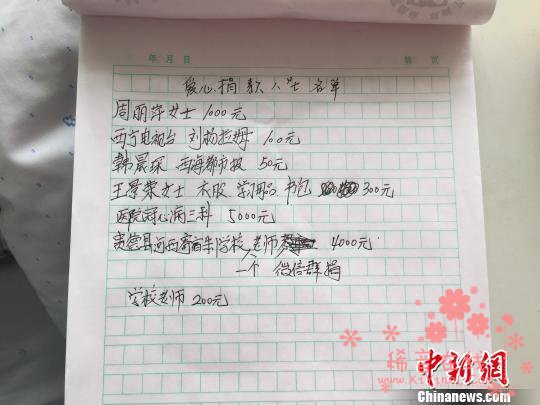 年 月 日 第 页
爱心捐款人士名单
周丽萍女士 1000元
西宁电视台 刘杨拉姆 100元
韩晨琛 西海都市报 50元
王景荣女士 衣服 学用品 书包 300元
医院冠心病三科 5000元
贵德县河西寄宿制学校 老师 4000元
一个 微信群捐
学校老师 200元
稀
中新网
Chinanews.com